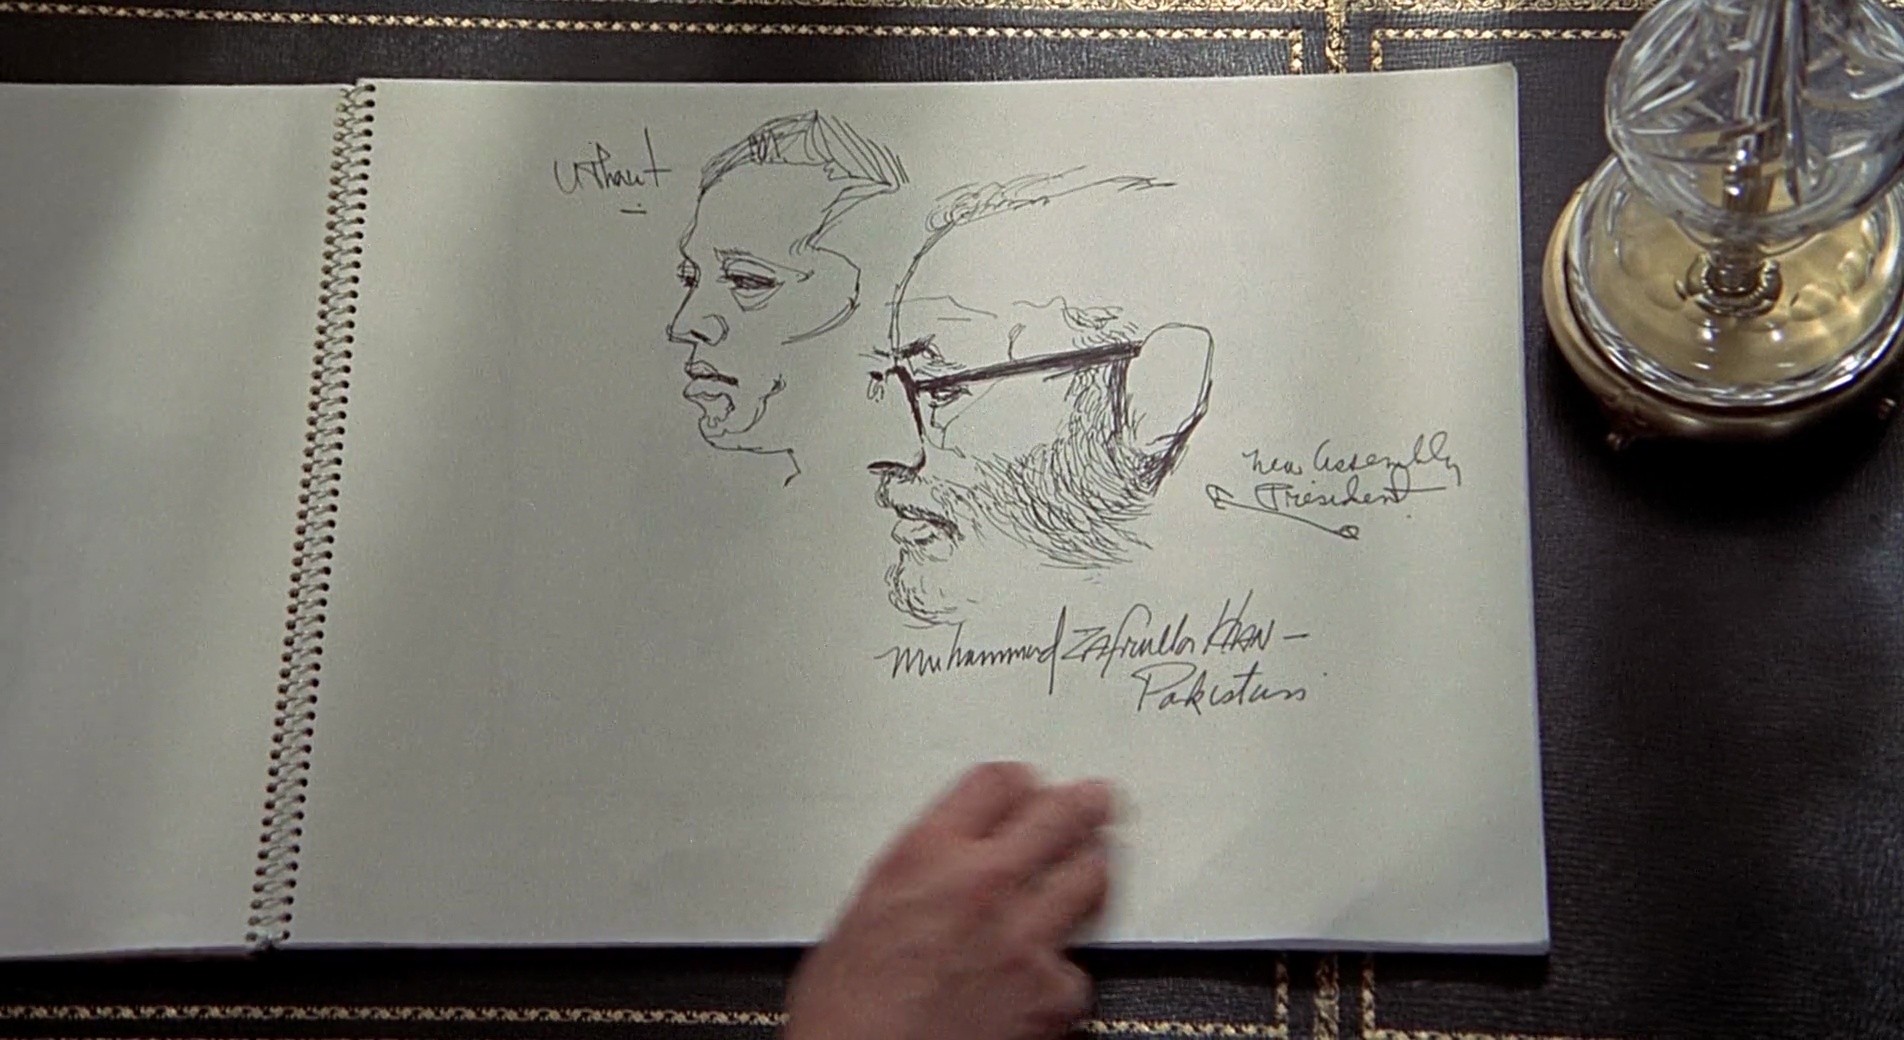 U Thant
New Assembly
President
Muhammad Zafrulla Khan -
Pakistan